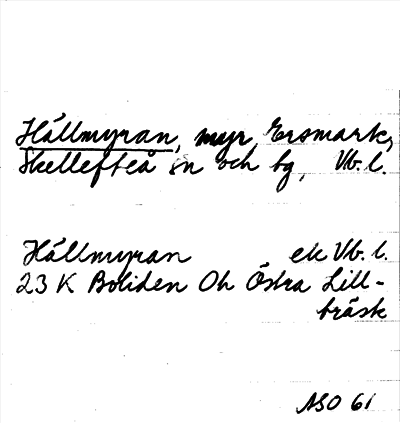 Hällmyran, myr, Ersmark,
Skellefteå sn och tg, Vb. l.
Hällmyran ek Vb. l.
23 K Boliden Oh Östra Lill-
träsk
ASO 61